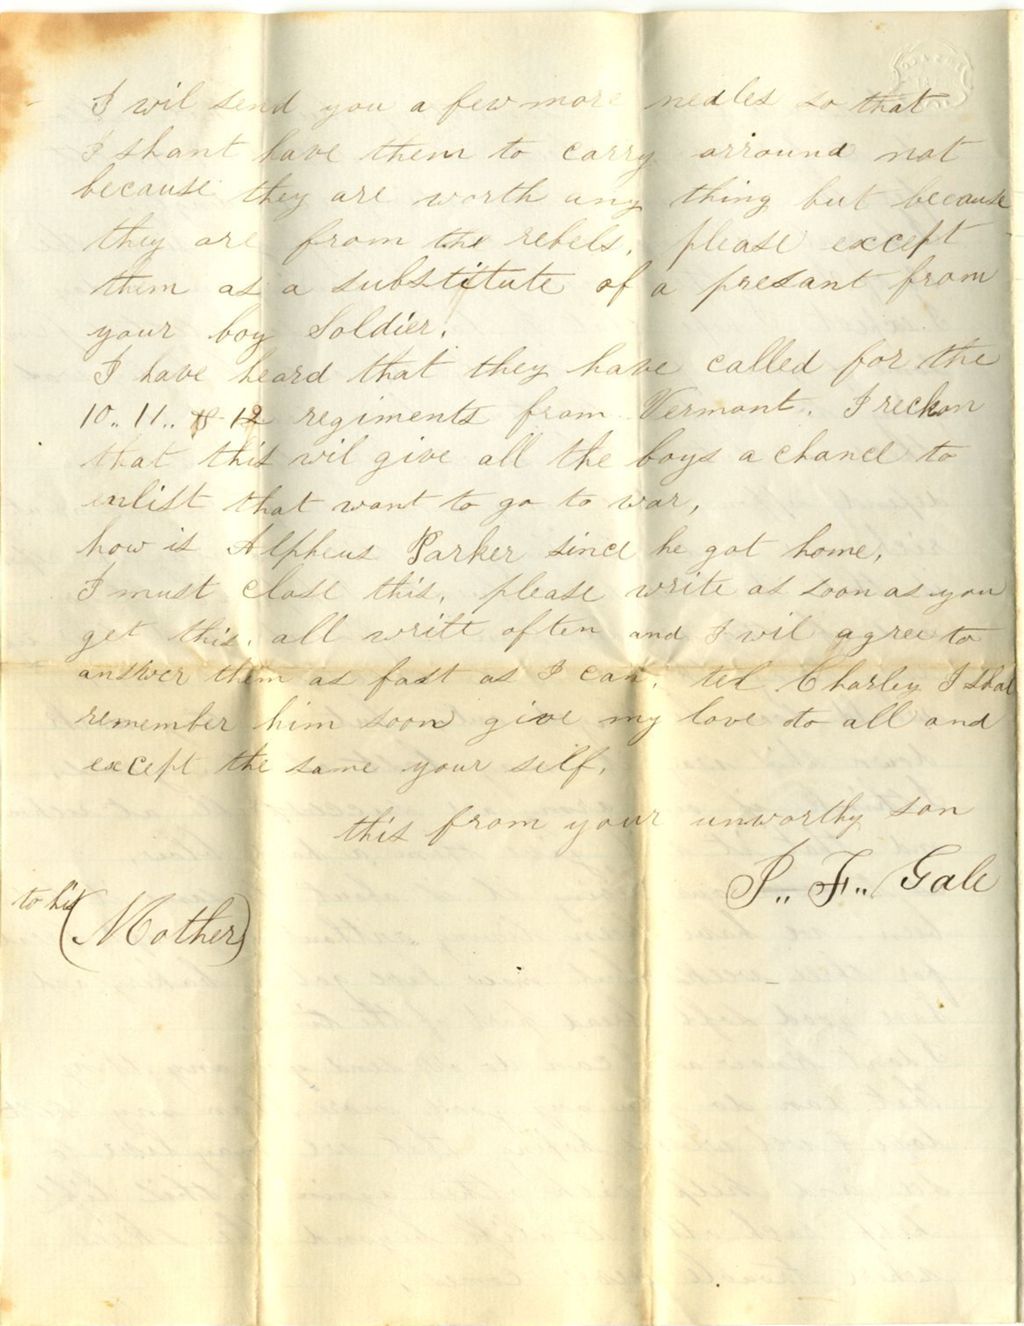 I wil send you a few more nedles so that
I shant have them to carry arround not
because they are worth any thing but because
they are from the rebels. please except
them as a substitute of a presant from
your boy Soldier.
I have heard that they have called for the
10.. 11.. & 12 regiments from Vermont. I reckon
that this wil give all the boys a chance to
enlist that want to go to war,
how is Alpheus Parker since he got home,
I must close this, please write as soon as you
get this, all write often and I wil agree to
answer them as fast as I can. tel Charley I shal
remember him soon give my love to all and
except the same your self,
this from your unworthy son
J.. F.. Gale
to his
(Mother)